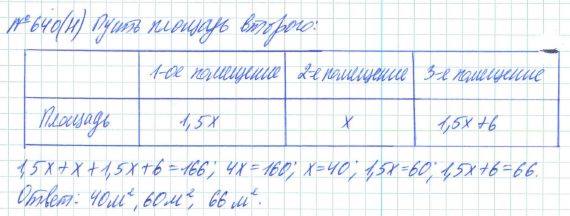 №640(Н) Пусть площадь второго:
1-ое помещение 2-е помещение 3-е помещение
Площадь 1,5х х 1,5х+6
1,5х+х+1,5х+6=166; 4х=160; х=40; 1,5х=60; 1,5х+6=66.
Ответ: 40м², 60м², 66м².